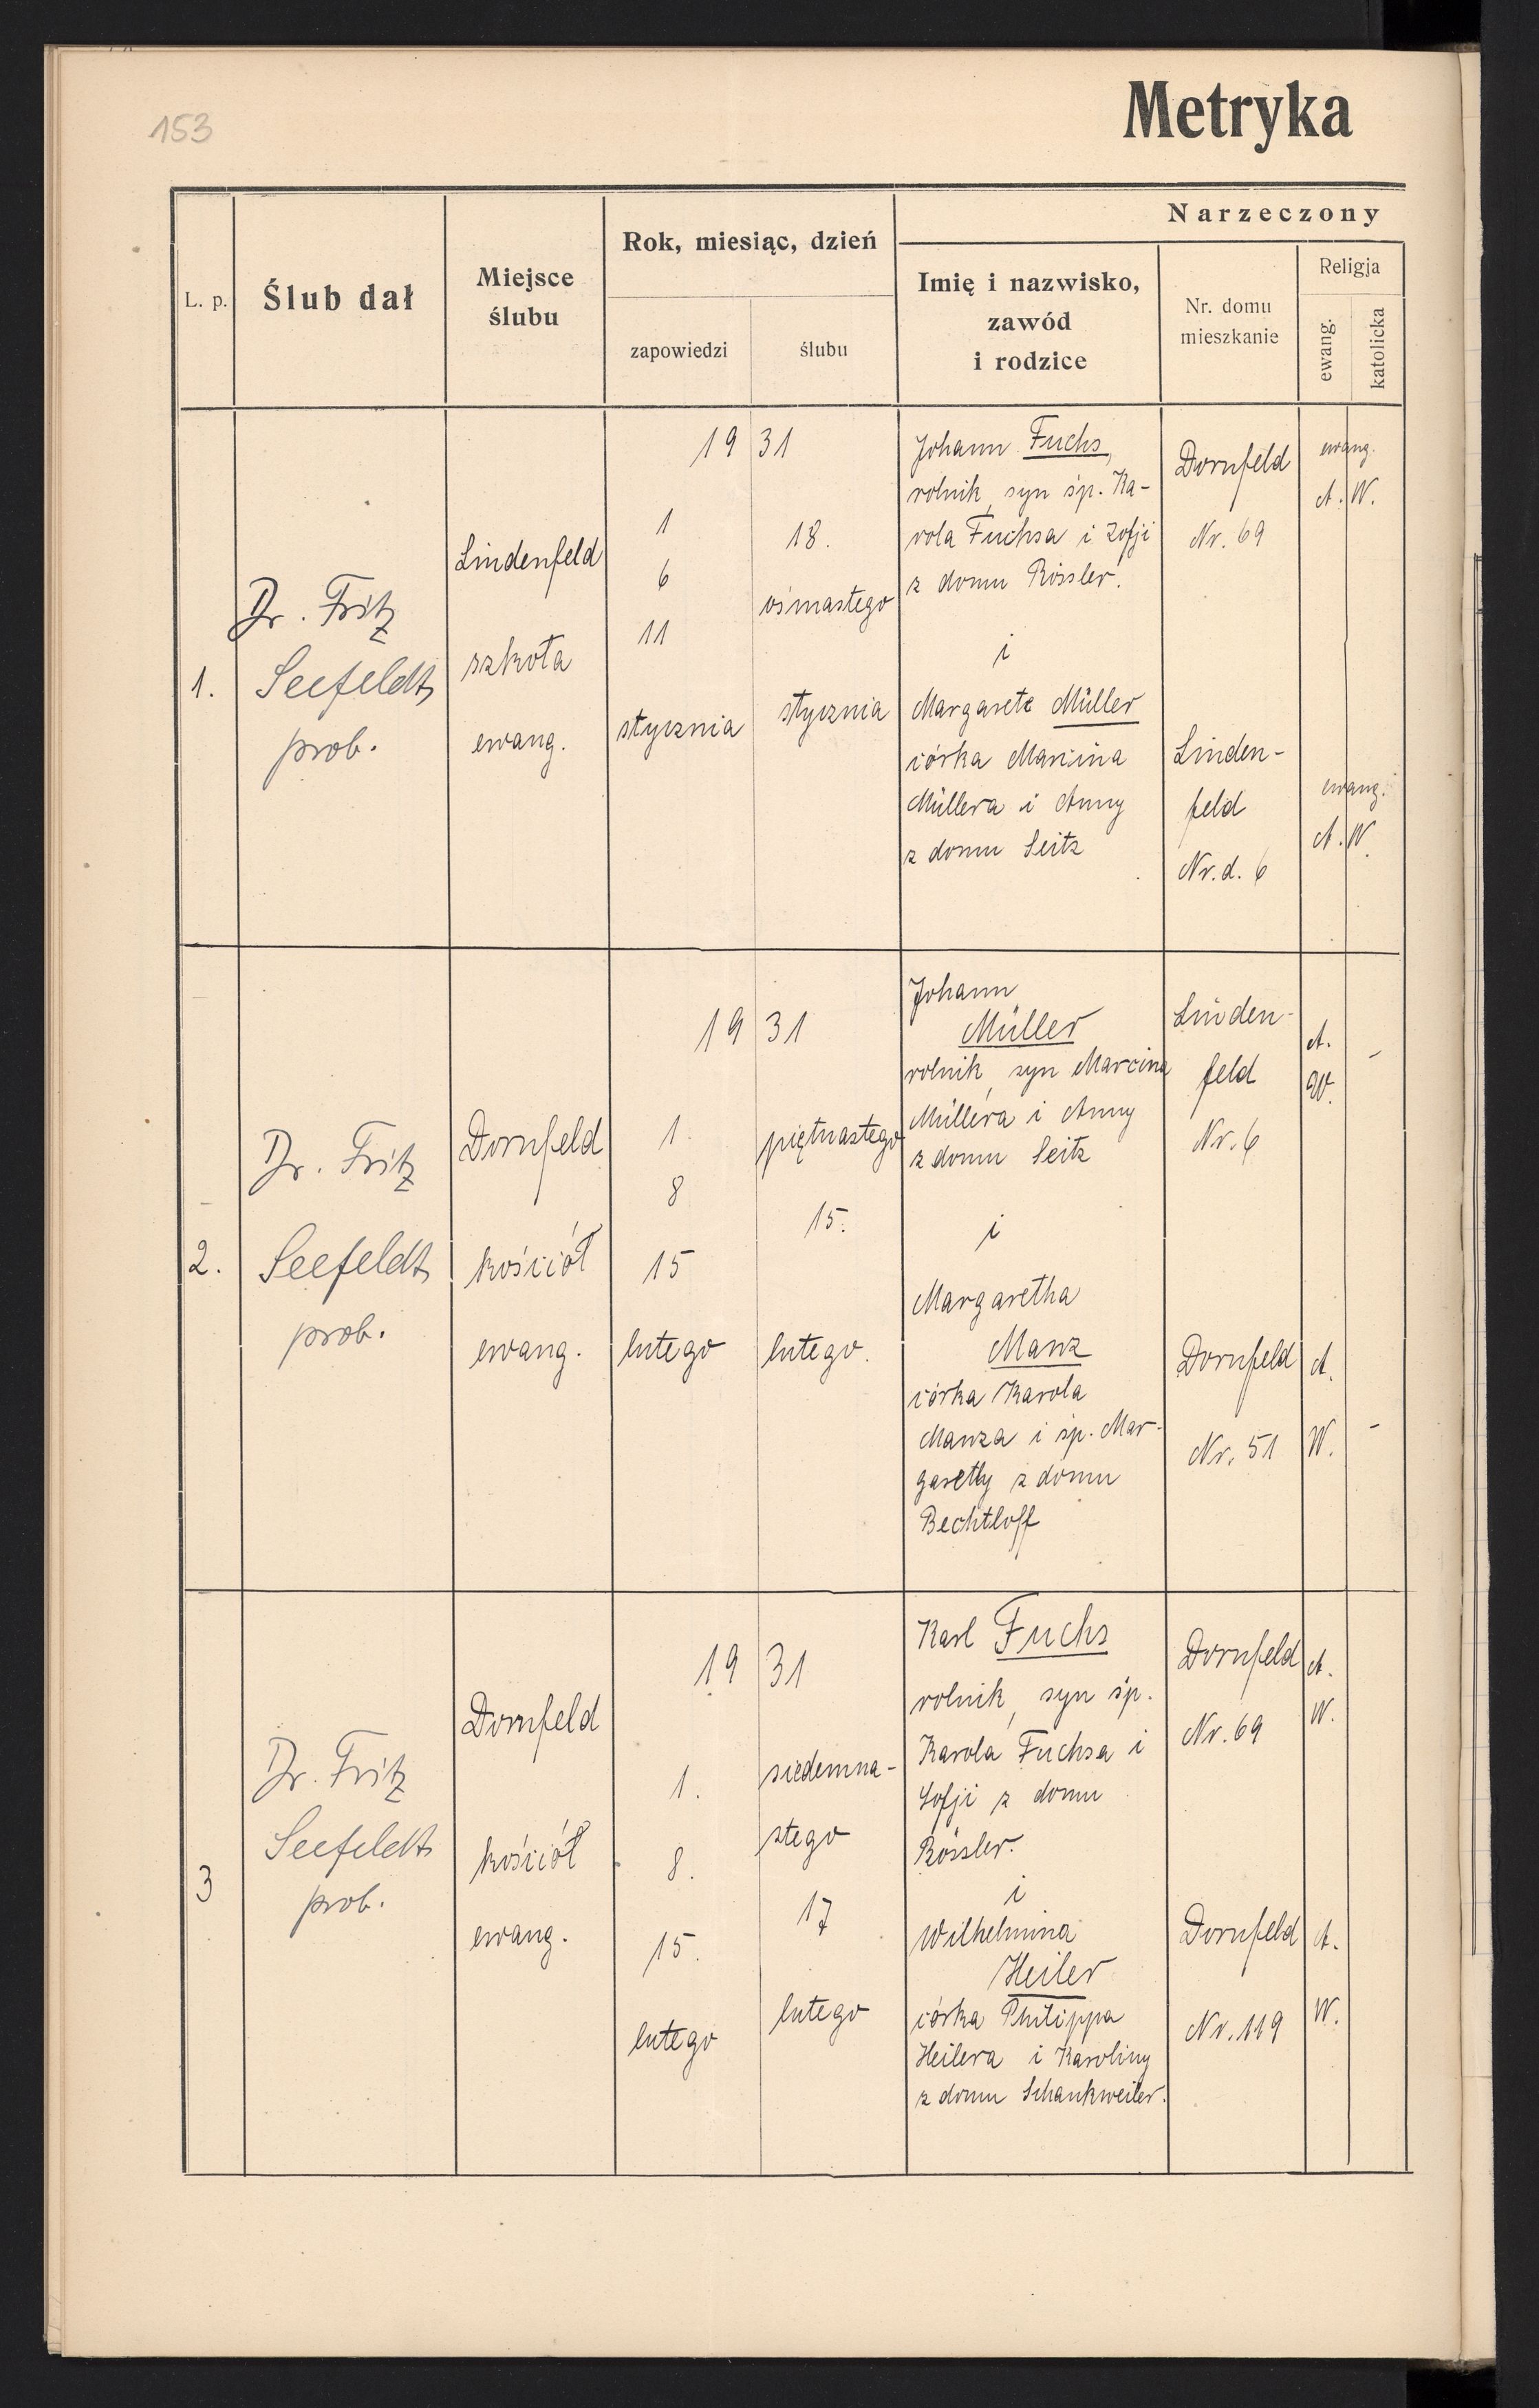 153
Metryka
L. p.
Ślub dał
Miejsce
ślubu
Rok, miesiąc, dzień
zapowiedzi
ślubu
Narzeczony
Imię i nazwisko,
zawód
i rodzice
Nr. domu
mieszkanie
Religja
ewang.
katolicka
1.
Dr. Fritz
Seefeldt,
prob.
Lindenfeld
szkoła
ewang.
19 31
1
6
11
stycznia
18.
ośmastego
stycznia
Johann Fuchs,
rolnik, syn śp. Ka-
rola Fuchsa i Zofji
z domu Rössler.
i
Margarete Müller
córka Marcina
Müllera i Anny
z domu Seitz
Dornfeld
Nr. 69
Linden-
feld
Nr. d. 6
ewang.
A. W.
ewang.
A. W.
2.
Dr. Fritz
Seefeldt,
prob.
Dornfeld
kościół
ewang.
19 31
1.
8
15
lutego
piętnastego
15.
lutego.
Johann
Müller
rolnik, syn Marcina
Müllera i Anny
z domu Seitz
i
Margaretha
Manz
córka Karola
Manza i śp. Mar-
garethy z domu
Bechtloff
Linden-
feld
Nr. 6
Dornfeld
Nr. 51
A.
W.
-
A.
W.
-
3
Dr. Fritz
Seefeldt,
prob.
Dornfeld
kościół
ewang.
19 31
1.
8.
15.
lutego
siedemna-
stego
17
lutego
Karl Fuchs
rolnik, syn śp.
Karola Fuchsa i
Zofji z domu
Rössler.
i
Wilhelmina
Heiler
córka Philippa
Heilera i Karoliny
z domu Schankweiler.
Dornfeld
Nr. 69
Dornfeld
Nr. 119
A.
W.
A.
W.